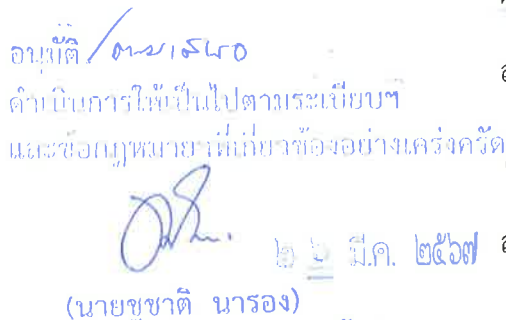 อนุมัติ / ตามเสนอ
ดำเนินการให้เป็นไปตามระเบียบฯ
และข้อกฎหมายที่เกี่ยวข้องอย่างเคร่งครัด
มี.ค. ๒๕๖๗
(นายชูชาติ นารอง)